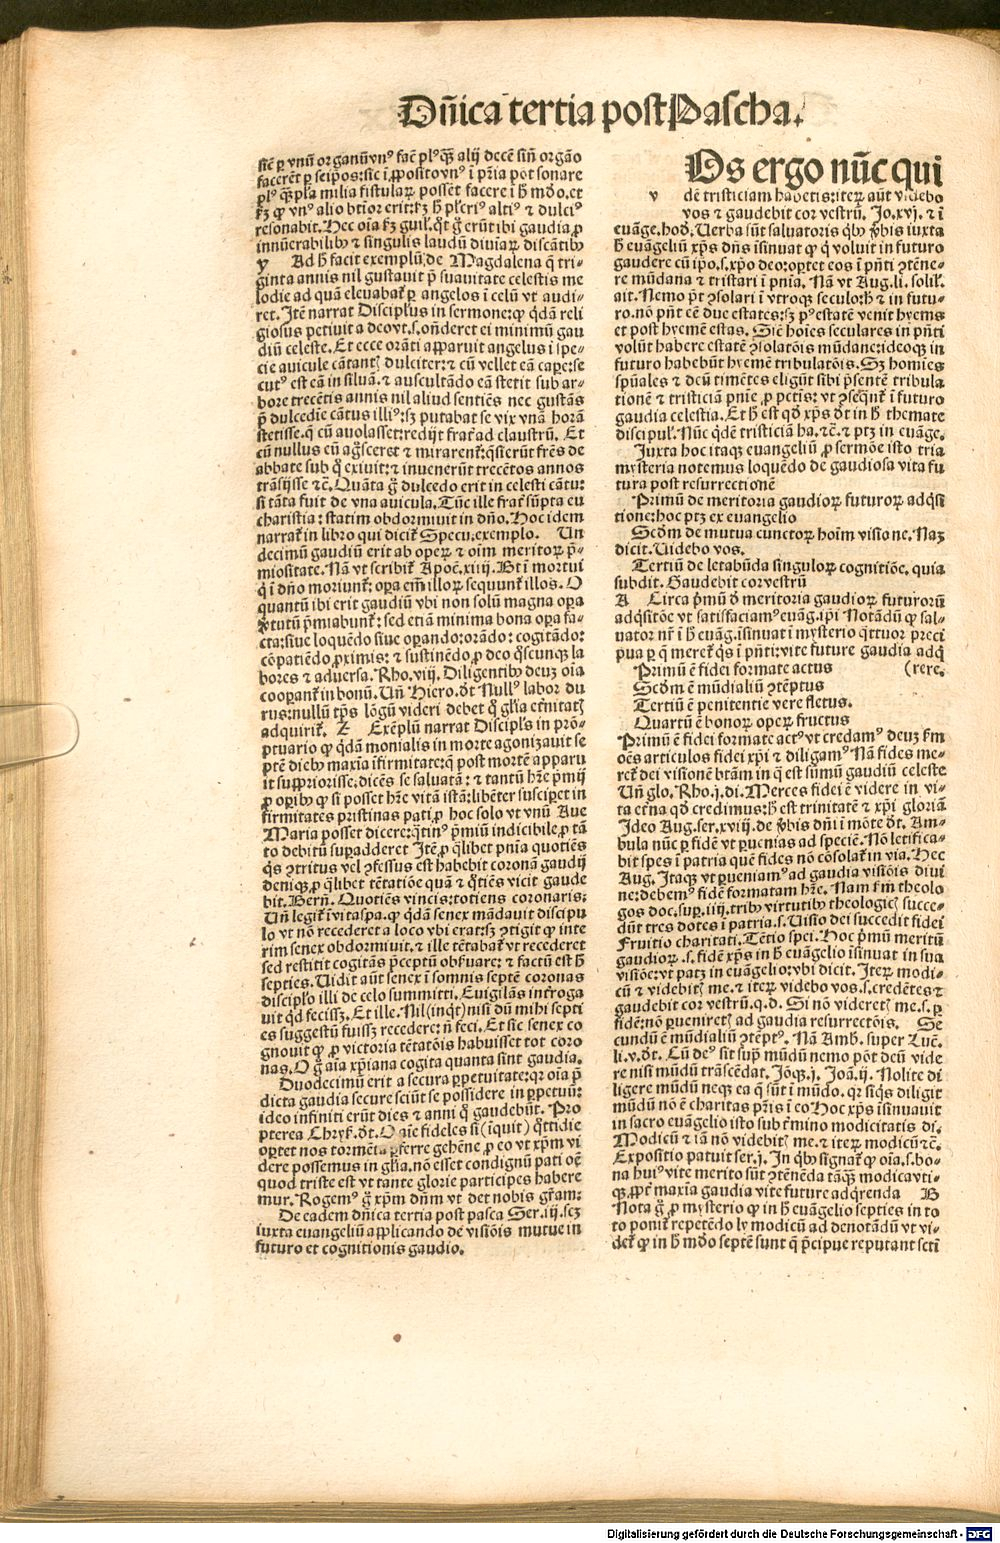 Dñica tertia post Pascha.
sic̄ ꝑ vnũ organũ vnꝰ facē plꝰ ꝙ̄ alij decē sin̄ orgāo
facerēt ꝑ seip̄os: sic ī ꝓposito vnꝰ ī pr̄ia pōt sonare
plꝰ ꝙ̄ pl̄a milia fistularꝝ possēt facere ī h̄ mūdo. et
ꝙ vnꝰ alio btīor erit: h̄ pl̄criꝰ altiꝰ ⁊ dulciꝰ
resonabit. Hec oīa guil. q̄ erūt ibi gaudia ꝓ
innūerabilibꝰ ⁊ singulis laudū diuiarꝝ discātibꝰ
y Ad h̄ facit exemplū de Magdalena q̄ tri-
ginta annis nil gustauit p̄ suauitate celestis me
lodie ad quā eleuabat̄ ꝑ angelos ī celū vt audi-
ret. Itē narrat Discipulus in sermone: ꝙ q̄dā reli
giosus petiuit a deo vt .s. on̄deret ei minimū gau
diū celeste. Et ecce orāti apparuit angelus ī spe-
cie auicule cātant̄ dulciter: ⁊ cū vellet eā caꝑe: se
cutꝰ est eā in siluā. ⁊ auscultādo eā stetit sub ar-
bore trecētis annis nil aliud sentiēs nec gustās
p̄ dulcedīe cātus illiꝰ: sꝫ putabat se vix vnā horā
stetisse. q̄ cū auolasset: redijt frat̄ ad claustrū. Et
cū nullus eū aḡsceret ⁊ mirarent̄: q̄sierūt frēs de
abbate sub q̄ exiuit: ⁊ inuenerūt trecētos annos
trāsijsse ⁊c̄. Quāta g̊ dulcedo erit in celesti cātu:
si tāta fuit de vna auicula. Tūc ille frat̄ sūpta eu
charistia: statim obdormiuit in dn̄o. Hoc idem
narrat̄ in libro qui dicit̄ Specu. exemplo. Un
decimū gaudiū erit ab operꝝ ⁊ oīm meritorꝝ p̄-
miositate. Nā vt scribit̄ Apoc̄. xiiij. Bt̄i mortui
q̇ ī dn̄o moriunt̄: oꝑa em̄ illorꝝ sequunt̄ illos. O
quantū ibi erit gaudiū vbi non solū magna oꝑa
ꝟtutū p̄miabunt̄: sed etiā minima bona oꝑa fa-
cta: siue loquēdo siue oꝑando: orādo: cogitādo:
cōpatiēdo ꝓximis: ⁊ sustinēdo ꝓ deo q̄scunqꝫ la
bores ⁊ aduersa. Rho. viij. Diligentibꝰ deuꝫ oīa
cooꝑant̄ in bonū. Un̄ Hiero. dt̄ Nullꝰ labor du
rus: nullū tp̄s lōgū videri debet q̊ gl̄ia et̄nitat̄
adquirit̄. Z Exēplū narrat Discipl̄s in prō-
ptuario ꝙ q̄dā monialis in morte agonizauit se
ptē dieb̄ maxīa īfirmitate: q̄ post mortē apparu
it suppriorisse: dicēs se saluatā: ⁊ tantū hr̄e p̄mij
ꝓ oꝑibꝰ ꝙ si posset hr̄e vitā istā: libēter susciꝑet in
firmitates pristinas pati ꝓ hoc solo vt vnū Aue
Maria posset dicere: q̄tinꝰ p̄miū indicibile ꝓ tā
to debitū suꝑadderet Itē ꝓ q̄libet pnīa quotiēs
q̇s ꝯtritus vel ꝯfessus est habebit coronā gaudij
deniqꝫ ꝓ q̄libet tētatiōe quā ⁊ q̄tiēs vicit gaude
bit. Bern̄. Quotiēs vincis: totiens coronaris:
Un̄ legit̄ ī vitaspa. ꝙ q̄dā senex mādauit discipu
lo vt nō recederet a loco vbi erat: sꝫ ꝯtigit ꝙ inte
rim senex obdormiuit. ⁊ ille tētabat̄ vt recederet
sed restitit cogitās p̄ceptū obẜuare: ⁊ factū est h̄
septies. Uidit aūt senex ī somnis septē coronas
disciplo illi de celo summitti. Euigilās int̄roga
uit qd̄ fecissꝫ. Et ille. Nil (inqt̄) nisi dū mihi septi
es suggestū fuissꝫ recedere: n̄ feci. Et sic senex co
gnouit ꝙ ꝓ victoria tētatōis habuisset tot coro
nas. O g̊ aīa xp̄iana cogita quanta sint gaudia.
Duodecimū erit a secura ꝑpetuitate: qꝛ oīa p̄
dicta gaudia secure sciūt se possidere in ꝑpetuū:
ideo infiniti erūt dies ⁊ anni q̇ gaudebūt. Pro
pterea Chryſ. dt̄. O aīe fideles si (inquit) q̄ttidie
oꝑtet nos tormēta ꝑferre gehēne ꝓ eo vt xp̄m vi
dere possemus in gl̄ia. nō esset condignū pati oē
quod triste est vt tante glorie participes habere
mur. Rogemꝰ g̊ xp̄m dn̄m vt det nobis gr̄am:
De eadem dn̄ica tertia post pasca Ser. iij. scꝫ
iuxta euangeliū applicando de visiōis mutue in
futuro et cognitionis gaudio.
Os ergo nūc qui
v dē tristiciam habetis: iterꝝ aūt videbo
vos ⁊ gaudebit cor vestrū. Jo. xvj. ⁊ ī
euāge. hod̄. Uerba sūt saluatoris q̇bꝰ ꝟbis iuxta
h̄ euangeliū xp̄s dn̄s īsinuat ꝙ q̇ voluit in futuro
gaudere cū ip̄o .s. xp̄o deo: oꝑtet eos ī pn̄ti ꝯtēne-
re mūdana ⁊ tristari ī pnīa. Nā vt Aug. li. solil.
ait. Nemo pt̄ ꝯsolari ī vtroqꝫ seculo: h̄ ⁊ in futu-
ro. nō pn̄t eē due estates: sꝫ pꝰ estatē venit hyems
et post hyemē estas. Sic̄ hoīes seculares in pn̄ti
volūt habere estatē ꝯsolatōis mūdane: ideoqꝫ in
futuro habebūt hyemē tribulatōis. Sꝫ homīes
spūales ⁊ deū timētes eligūt sibi p̄sentē tribula
tionē ⁊ tristiciā pnīe ꝓ pctīs: vt ꝯseq̄nt̄ ī futuro
gaudia celestia. Et h̄ est qd̄ xp̄s dt̄ in h̄ themate
discipul. Nūc q̇dē tristiciā ha. ⁊c̄. ⁊ ptꝫ in euāge.
Juxta hoc itaqꝫ euangeliū ꝓ sermōe isto tria
mysteria notemus loquēdo de gaudiosa vita fu
tura post resurrectionē
Primū de meritoria gaudiorꝝ futurorꝝ adq̇si
tione: hoc ptꝫ ex euangelio
Scd̄m de mutua cunctorꝝ hoīm visione. Naꝫ
dicit. Uidebo vos.
Tertiū de letabūda singulorꝝ cognitiōe, quia
subdit. Gaudebit cor vestrū
A Circa p̄mū de meritoria gaudiorꝝ futurorū
adq̇sitōe vt satisfaciamꝰ euāg. ip̄i Notādū ꝙ sal-
uator nr̄ ī h̄ euāg. īsinuat ī mysterio q̄ttuor preci
pua ꝑ q̄ meret̄ q̇s ī pn̄ti: vite future gaudia adq̇
Primū ē fidei formate actus (rere.
Scd̄m ē mūdialiū ꝯtēptus
Tertiū ē penitentie vere fletus.
Quartū ē honorꝝ operꝝ fructus
Primū ē fidei formate actꝰ vt credamꝰ deuꝫ ẜm
oēs articulos fidei xp̄i ⁊ diligamꝰ Nā fides me-
ret̄ dei visionē btām in q̄ est sūmū gaudiū celeste
Un̄ glo. Rho. j. di. Merces fidei ē videre in vi-
ta et̄na qd̄ credimus: h̄ est trinitatē ⁊ xp̄i gloriā
Ideo Aug. ser. xviij. de ꝟbis dn̄i ī mōte dt̄. Am-
bula nūc ꝑ fidē vt ꝑuenias ad speciē. Nō letifica-
bit spes ī patria quē fides nō cōsolat̄ in via. Hec
Aug. Itaqꝫ vt ꝑueniamꝰ ad gaudia visiōis diui
ne: debemꝰ fidē formatam hr̄e. Nam ẜm theolo
gos doc. suꝑ. iiij. tribꝰ virtutibꝰ theologic̄ succe-
dūt tres dotes ī patria .s. Uisio dei succedit fidei
Fruitio charitati. Tētio spei. Hoc p̄mū meritū
gaudiorꝝ .s. fidē xp̄s in h̄ euangelio īsinuat in sua
visiōe: vt patꝫ in euangelio: vbi dicit. Iterꝝ modi-
cū ⁊ videbit̄ me. ⁊ iterꝝ videbo vos .s. credētes ⁊
gaudebit cor vestrū. q.d. Si nō videret̄ me .s. ꝑ
fidē: nō ꝑueniret̄ ad gaudia resurrectōis. Se
cundū ē mūdialiū ꝯtēptꝰ. Nā Amb. super Luc̄.
li. v. dt̄. Cū deꝰ sit suꝑ mūdū nemo pōt deū vide
re nisi mūdū trāscēdat. Jōqꝫ. j. Joā. ij. Nolite di
ligere mūdū neqꝫ ea q̄ sūt ī mūdo. qꝛ siq̇s diligit
mūdū nō ē charitas pr̄is ī eo Hoc xp̄s īsinuauit
in sacro euāgelio isto sub t̄mino modicitatis di.
Modicū ⁊ iā nō videbit̄ me. ⁊ iterꝝ modicū ⁊c̄.
Expositio patuit ser. j. In q̇bꝰ signat̄ ꝙ oīa .s. bo-
na huiꝰ vite merito sūt ꝯtēnēda tāꝙ̄ modica vti-
qꝫ. ꝓpt̄ maxīa gaudia vite future adq̇renda B
Nota g̊ ꝓ mysterio ꝙ in h̄ euāgelio septies in to
to ponit̄ repetēdo ly modicū ad denotādū vt vi-
det̄ ꝙ in h̄ mūdo septē sunt q̄ p̄cipue reputant scti
Digitalisierung gefördert durch die Deutsche Forschungsgemeinschaft - DFG